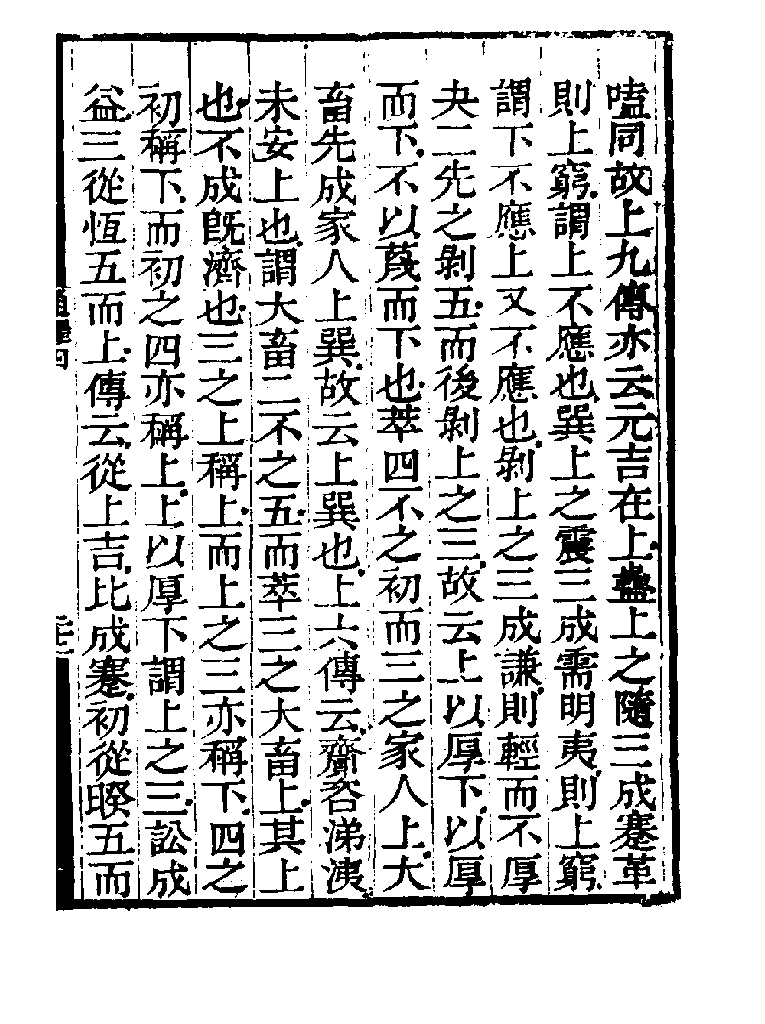 嗑同故上九傳亦云元吉在上蠱上之隨三成蹇革
則上窮謂上不應也巽上之震三成需明夷則上窮
謂下不應上又不應也剝上之三成謙則輕而不厚
夬二先之剝五而後剝上之三故云上以厚下以厚
而下不以蔑而下也萃四不之初而三之家人上大
畜先成家人上巽故云上巽也上六傳云齎咨涕洟
未安上也謂大畜二不之五而萃三之大畜上其上
也不成旣濟也三之上稱上而上之三亦稱下四之
初稱下而初之四亦稱上上以厚下謂上之三訟成
益三從恆五而上傳云從上吉比成蹇初從睽五而
通釋四